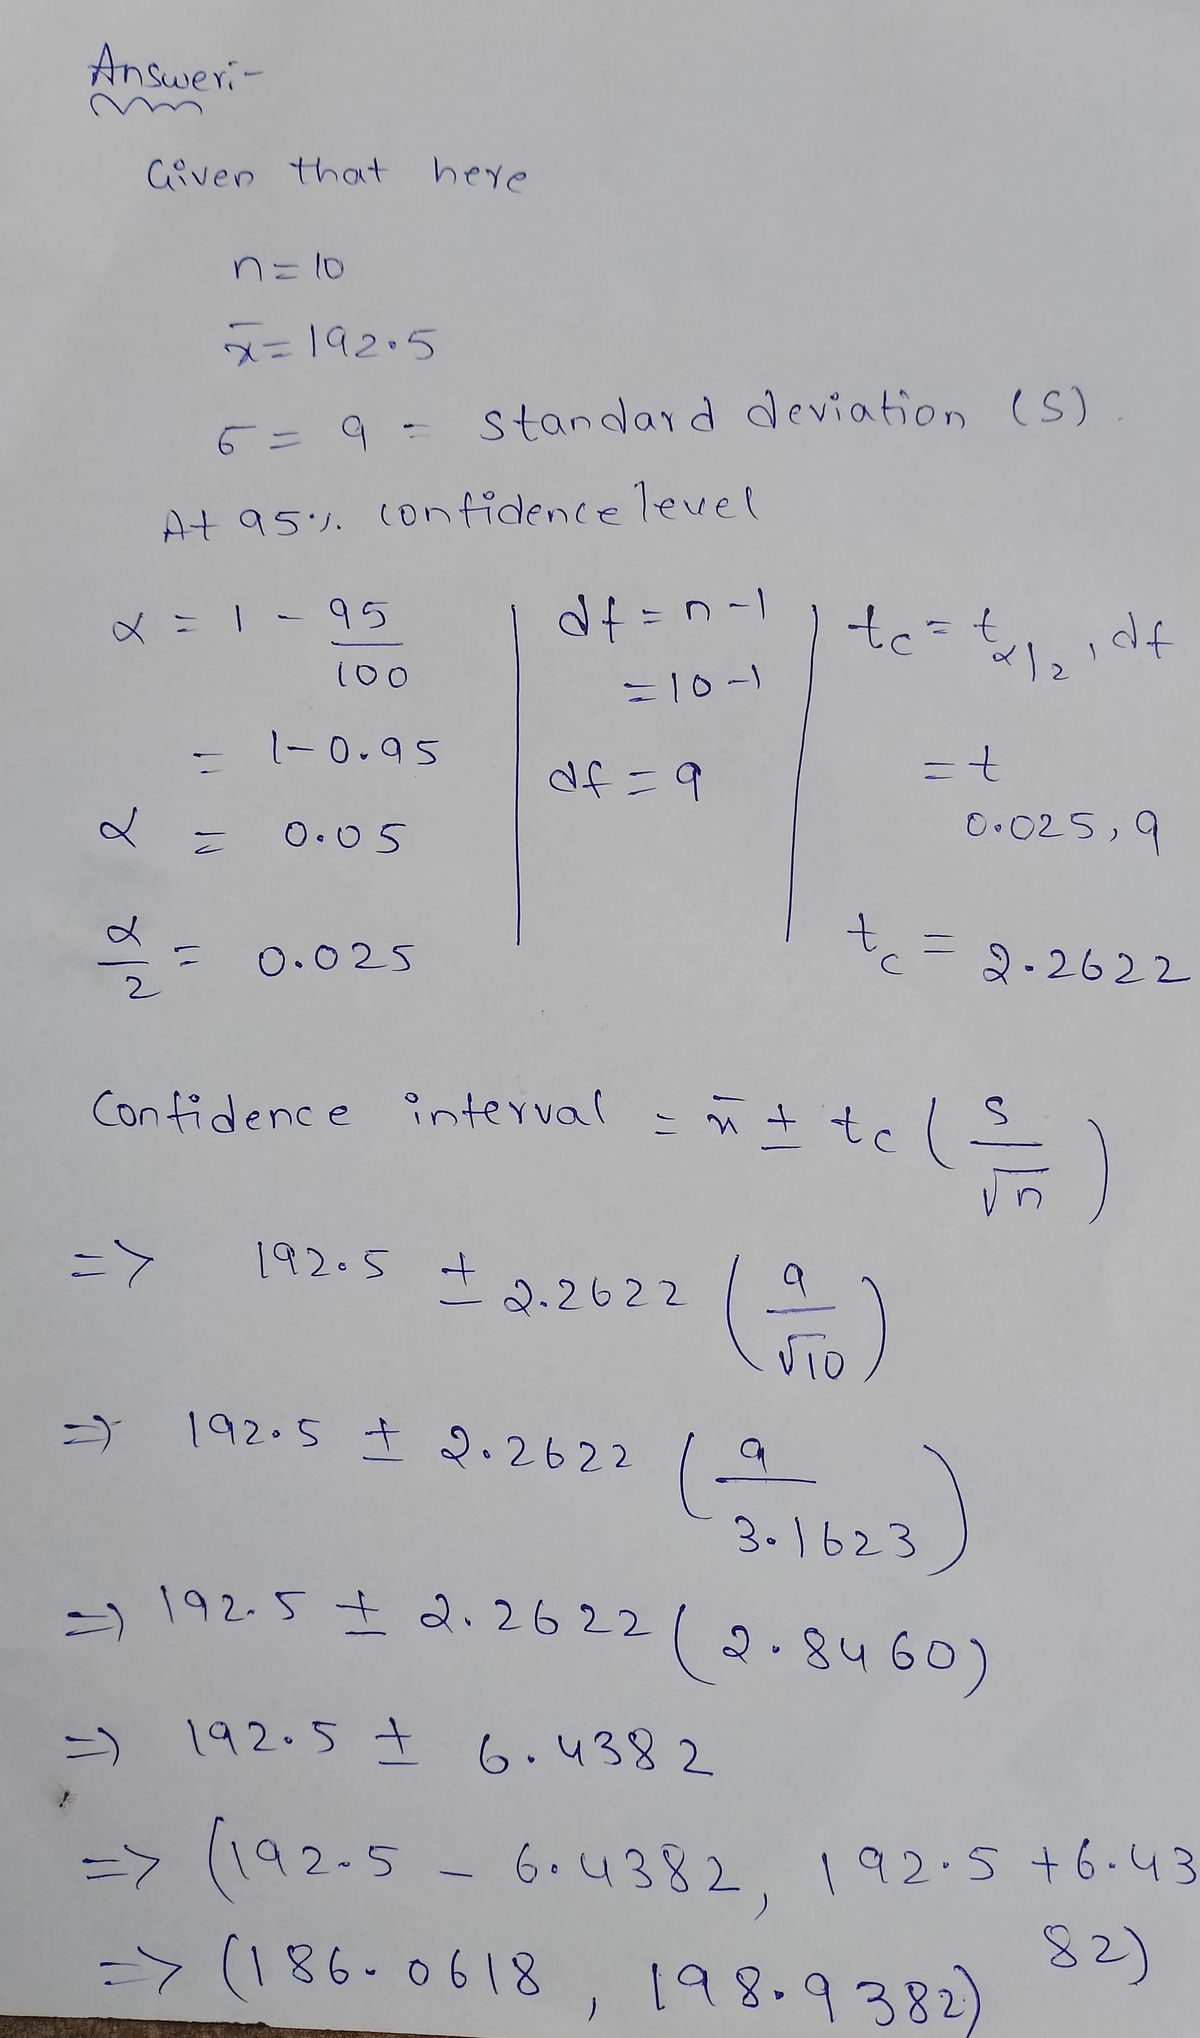 Answer:-
Given that here
n = 10
x̄ = 192.5
σ = 9 = standard deviation (S).
At 95%. confidence level
α = 1 - 95/100
= 1-0.95
α = 0.05
α/2 = 0.025
df = n-1
= 10-1
df = 9
tc = t α/2, df
= t 0.025, 9
tc = 2.2622
Confidence interval = x̄ ± tc (S/√n)
=> 192.5 ± 2.2622 (9/√10)
=> 192.5 ± 2.2622 (9/3.1623)
=> 192.5 ± 2.2622 (2.8460)
=> 192.5 ± 6.4382
=> (192.5 - 6.4382, 192.5 + 6.43
82)
=> (186.0618, 198.9382)